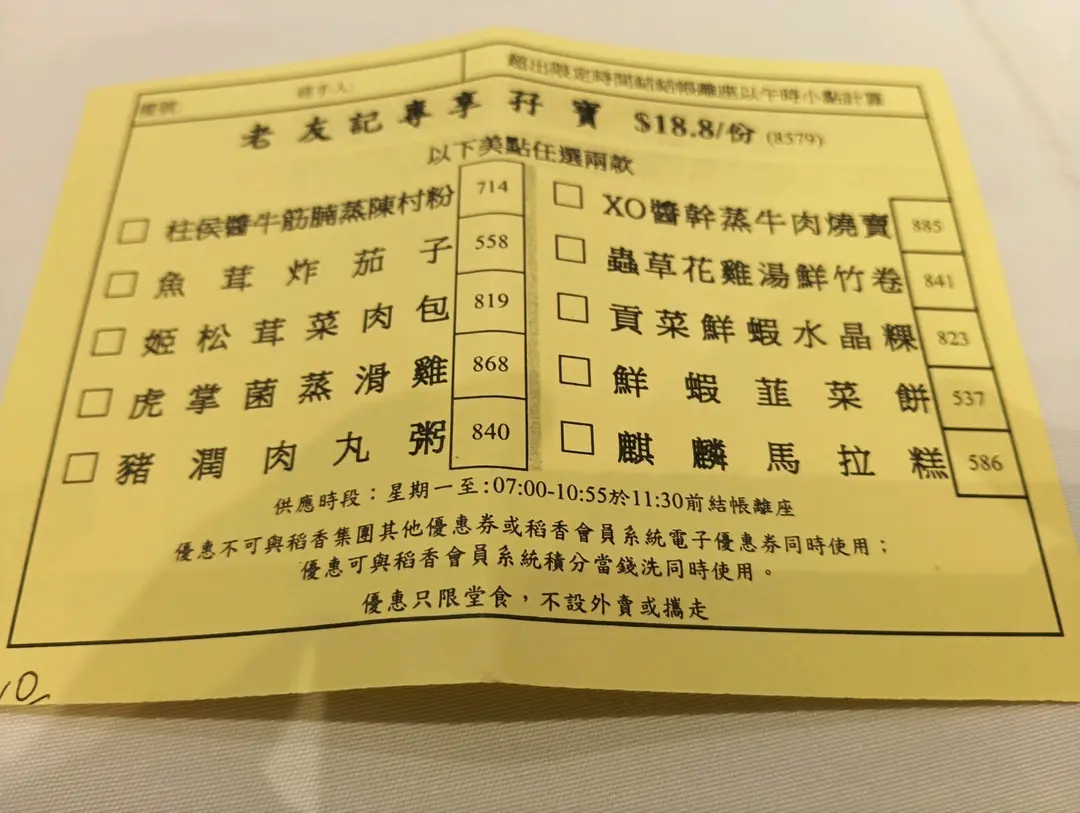 檯號
經手人:
超出限定時間結結帳離座以午時小點計算
老友記專享孖寶 $18.8/份 (8579)
以下美點任選兩款
□ 柱侯醬牛筋腩蒸陳村粉 714
□ 魚茸炸茄子 558
□ 姬松茸菜肉包 819
□ 虎掌菌蒸滑雞 868
□ 豬潤肉丸粥 840
□ XO醬幹蒸牛肉燒賣 885
□ 蟲草花雞湯鮮竹卷 841
□ 貢菜鮮蝦水晶粿 823
□ 鮮蝦韮菜餅 537
□ 麒麟馬拉糕 586
供應時段：星期一至:07:00-10:55於11:30前結帳離座
優惠不可與稻香集團其他優惠券或稻香會員系統電子優惠券同時使用；
優惠可與稻香會員系統積分當錢洗同時使用。
優惠只限堂食，不設外賣或攜走